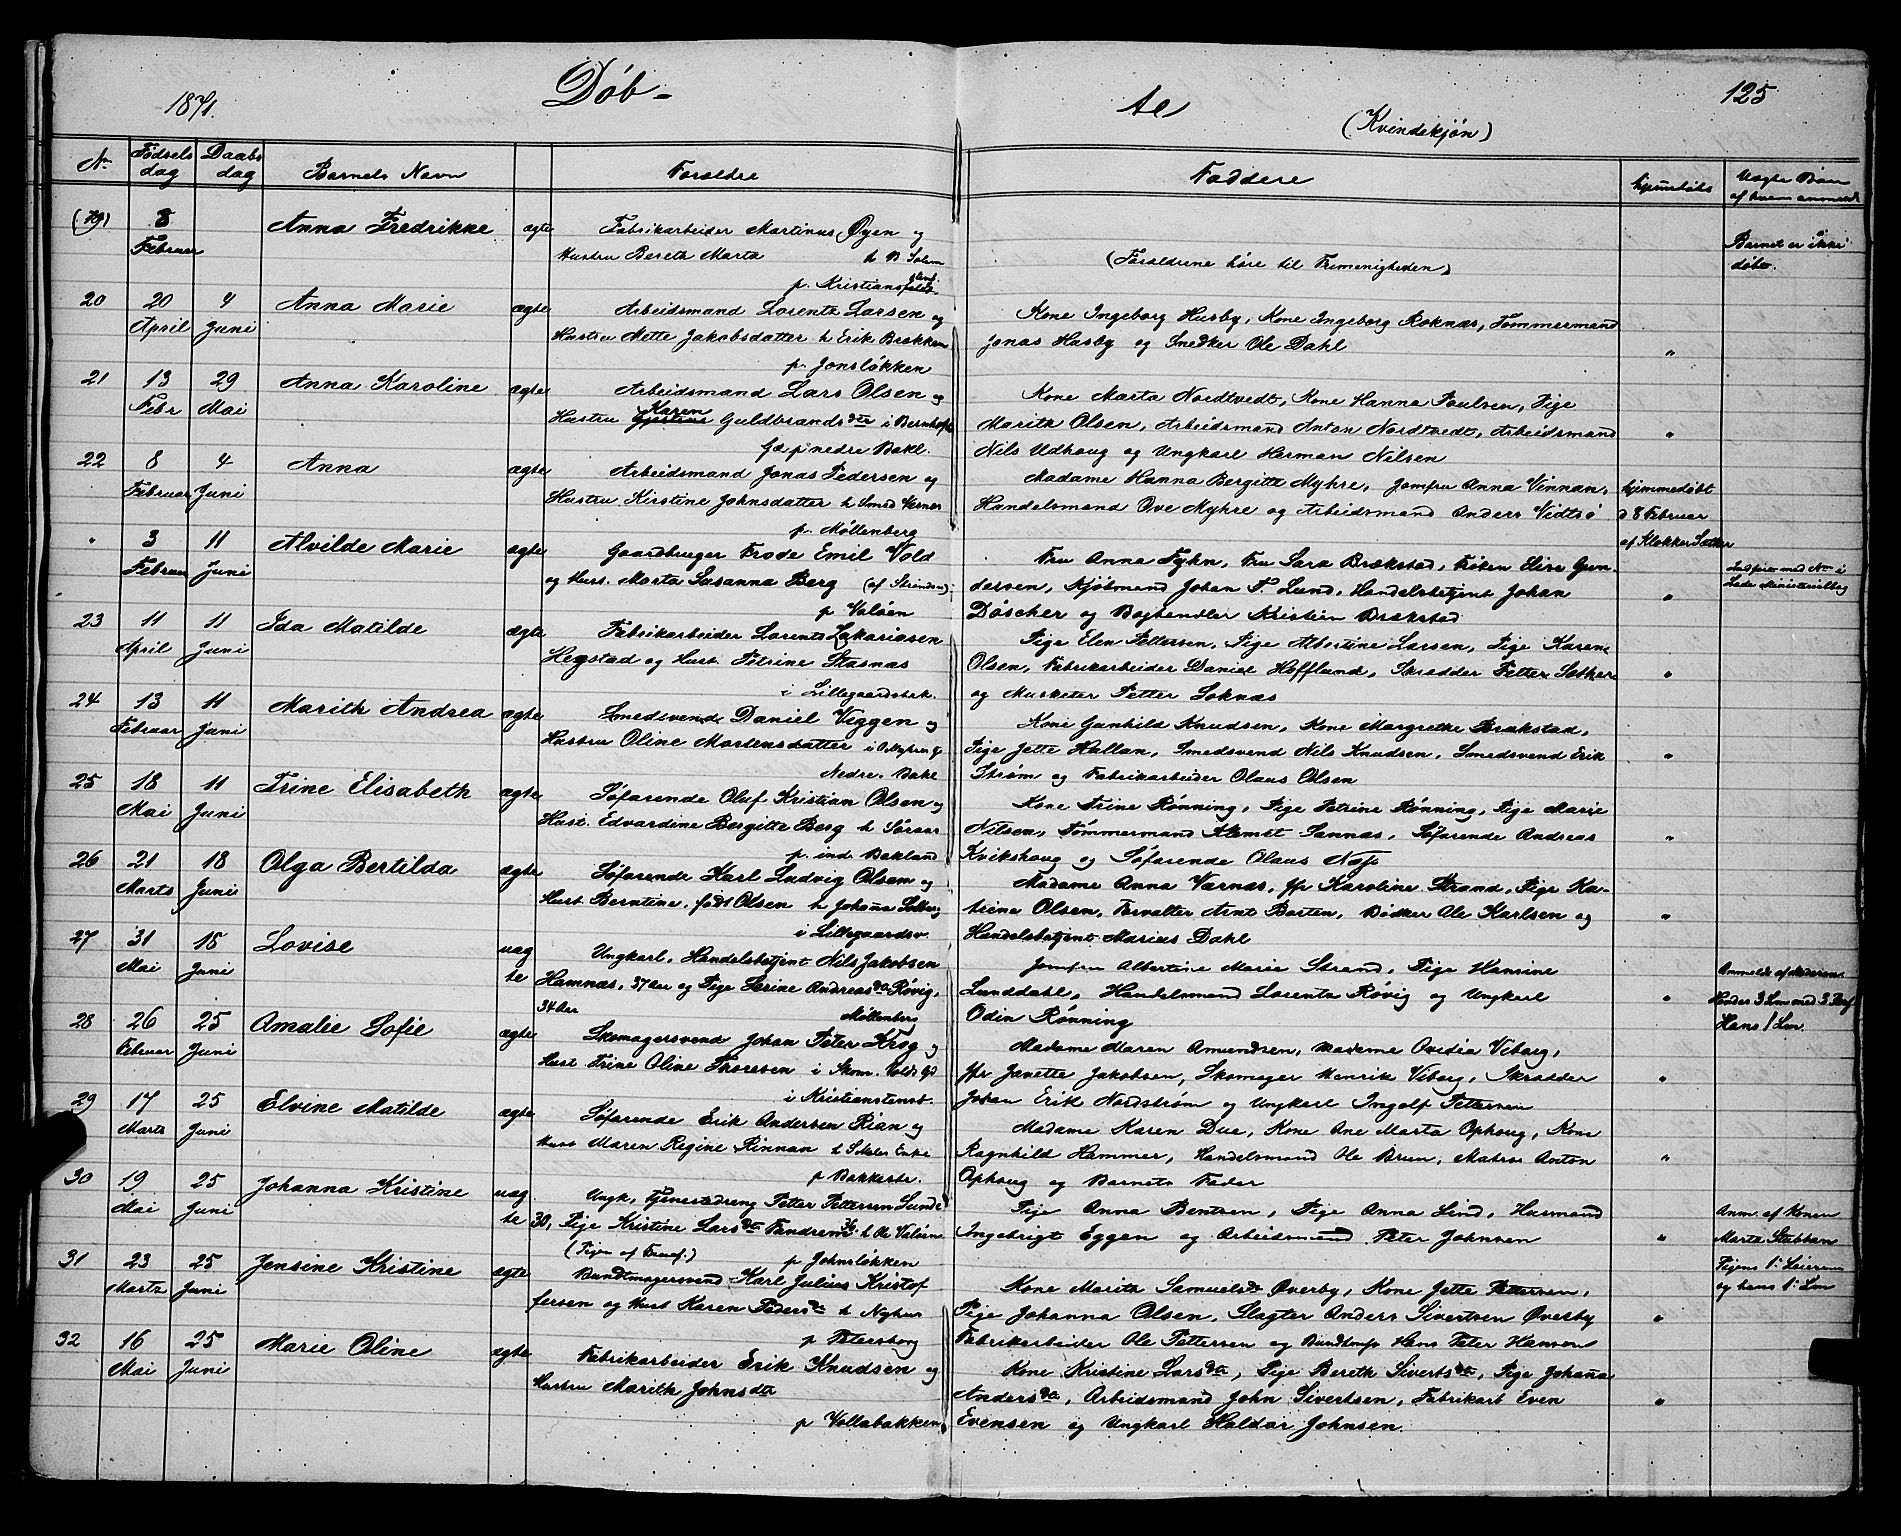 1871.
Døb-
te
(Kvindekjøn)
125
Nr. Fødsels dag Daabs dag Barnets Navn Forældre Faddere hjemmedøbt Uægte Børn af hvem anmeldt
(19) 8 Februar Anna Fredrikke ægte Fabrikarbeider Martinus Øyen og
Hustru Bereth Marta h B Solem
p. Kristiansfeldt
(Forældrene høre til Frimenigheden)
Barnet er ikke
døbt.
20 20 April 4 Juni Anna Marie ægte Arbeidsmand Lorentz Larsen og
Hustru Mette Jakobsdatter h Erik Brækken
p. Jonsløkken
Kone Ingeborg Husby, Kone Ingeborg Roknæs, Tømmermand
Jonas Husby og Snedker Ole Dahl "
21 13 Febr 29 Mai Anna Karoline ægte Arbeidsmand Lars Olsen og
Hustru Karen Guldbrandsda i
p nedre Bakl.
Kone Marta Nordtvedt, Kone Hanna Poulsen, Pige
Marith Olsen, Arbeidsmand Anton Nordtvedt, Arbeidsmand "
Nils Udhoug og Ungkarl Herman Nilsen
22 8 Februar 4 Juni Anna ægte Arbeidsmand Jonas Pedersen og
Hustru Kirstine Johnsdatter h Smed Værnes
p. Møllenberg
Madame Hanna Bergitte Myhre, Jomfru Anna Vinnan,
Handelsmand Ove Myhre og Arbeidsmand Anders Vidtsø
hjemmedøbt
d 8 Februar
af Klokker Sæther
" 3 Februar 11 Juni Alvilde Marie ægte Gaardbruger Frode Emil Vold
og Hust. Marta Susanna Berg (af Strinden)
p Valøen
Fru Anna Fyhn, Fru Sara Brækstad, Frøken Elise Gun-
dersen, Kjøbmand Johan F. Lund, Handelsbetjent Johan "
Döscher og Boghandler Kristian Brækstad
Indført med Nr i
Lade Ministerialbog
23 11 April 11 Juni Ida Matilde ægte Fabrikarbeider Lorents Zakariasen
Hegstad og Hust. Petrine Stasnæs
i Lillegaardsbak.
Pige Elen Pettersen, Pige Albertine Larsen, Pige Karen
Olsen, Fabrikarbeider Daniel Hofflund, Skrædder Petter Sæther "
og Musketer Petter Soknæs
24 13 Februar 11 Juni Marith Andrea ægte Smedsvend Daniel Viggen og
Hustru Oline Mortensdatter i
Nedre. Bakl
Kone Gunhild Knudsen, Kone Margrethe Brækstad,
Pige Jette Hallan, Smedsvend Nils Knudsen, Smedsvend Erik "
Strøm og Fabrikarbeider Olaus Olsen
25 18 Mai 11 Juni Trine Elisabeth ægte Søfarende Oluf Kristian Olsen og
Hust. Edvardine Bergitte Berg h
p. ind. Bakland
Kone Trine Rønning, Pige Petrine Rønning, Pige Marie
Nilsen, Tømmermand Sannæs, Søfarende Andreas "
Kvikshoug og Søfarende Olaus Næss
26 21 Marts 18 Juni Olga Bertilda ægte Søfarende Karl Ludvig Olsen og
Hust Berntine, født Olsen h Johan Solberg
i Lillegaardsv.
Madame Anna Værnæs, jfr Karoline Strand, Pige Ka-
trine Olsen, Forvalter Arnt Borten, Bødker Ole Karlsen og "
Handelsbetjent Marius Dahl
27 31 Mai 18 Juni Lovise uæg
te Ungkarl, Handelsbetjent Nils Jakobsen
Hamnæs, 37 Aar og Pige Serine Andreasda Røvig,
34 Aar Møllenberg
Jomfru Albertine Marie Strand, Pige Hansine
Lunddahl, Handelsmand Lorents Røvig og Ungkarl "
Odin Rønning
Anmeldt af Moderen
Hendes 3 Lm med 3
Hans 1 Lm.
28 26 Februar 25 Juni Amalie Sofie ægte Skomagersvend Johan Peter Krog og
Hust Trine Oline Thoresen i Skom. Volds Gd
i Kristianstensb.
Madame Maren Amundsen, Madame Ovidia Viborg,
jfr Janette Jakobsen, Skomager Henrik Viborg, Skrædder "
Johan Erik Nordstrøm og Ungkarl Ingolf Pettersen
29 17 Marts 25 Juni Elvine Matilde ægte Søfarende Erik Andersen Rian og
Hust Maren Regine Rinnan h Enke
p Bakkestr.
Madame Karen Due, Kone Ane Marta Ophoug, Kone
Ragnhild Hammer, Handelsmand Ole Brun, Matros Anton "
Ophoug og Barnets Fader
30 19 Mai 25 Juni Johanna Kristine uæg
te Ungk, Tjenestedreng Petter Pettersen Lunde
30, Pige Kristine Larsda Fandrem 36 h Ole Valøen
p Johnsløkken
Pige Anna Bentsen, Pige Anna Lind, Husmand
Ingebrigt Eggen og Arbeidsmand Peter Johnsen "
Anm. af Konen
Marta Stubban
Pigens 1ste Leierm
og hans 1ste Lm
31 23 Marts 25 Juni Jensine Kristine ægte Bundtmagersvend Karl Julius Kristof
fersen og Hust Karen Pedersda h Nyhus
p Petersborg
Kone Marith Samuelsdt Øverby, Kone Jette Pettersen,
Pige Johanna Olsen, Slagter Anders Sivertsen Øverby "
Fabrikarbeider Ole Pettersen og Bundtmgr Hans Peter Hansen
32 16 Mai 25 Juni Marie Oline ægte Fabrikarbeider Erik Knudsen og
Hustru Marith Johnsdtr
p Vollabakken
Kone Kristine Larsda, Pige Bereth Sivertsda, Pige Johanna
Andersda, Arbeidsmand John Sivertsen, Fabrikarb Even "
Evensen og Ungkarl Haldor Johnsen.